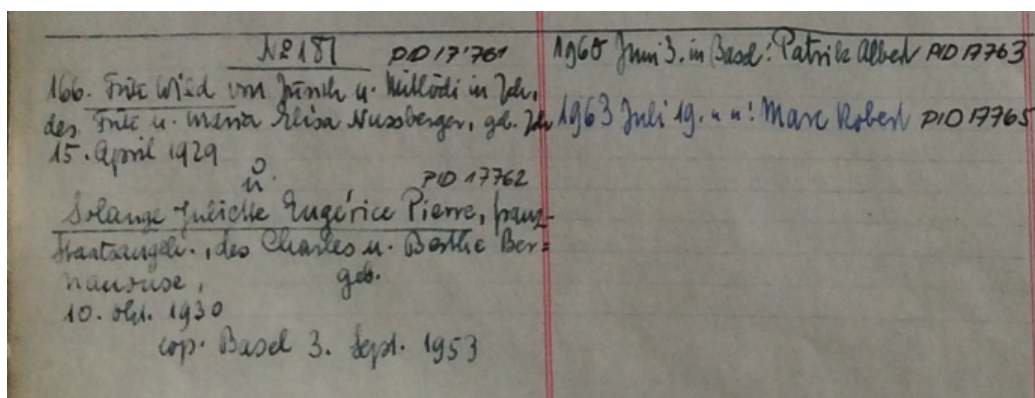 No 181 PID 17'761
166. Fritz Wild von Zürich u. Mitlödi in Zch,
des Fritz u. Maria Elisa Nussberger, geb. Zch
15. April 1929
u. PID 17762
Solange Juliette Eugérice Pierre, franz-
Staatsangeh., des Charles u. Berthe Ber=
geb.
10. Okt. 1930
cop. Basel 3. Sept. 1953
1960 Juni 3. in Basel: Patrik Albert PID 17763
1963 Juli 19. " ": Marc Robert PID 17765